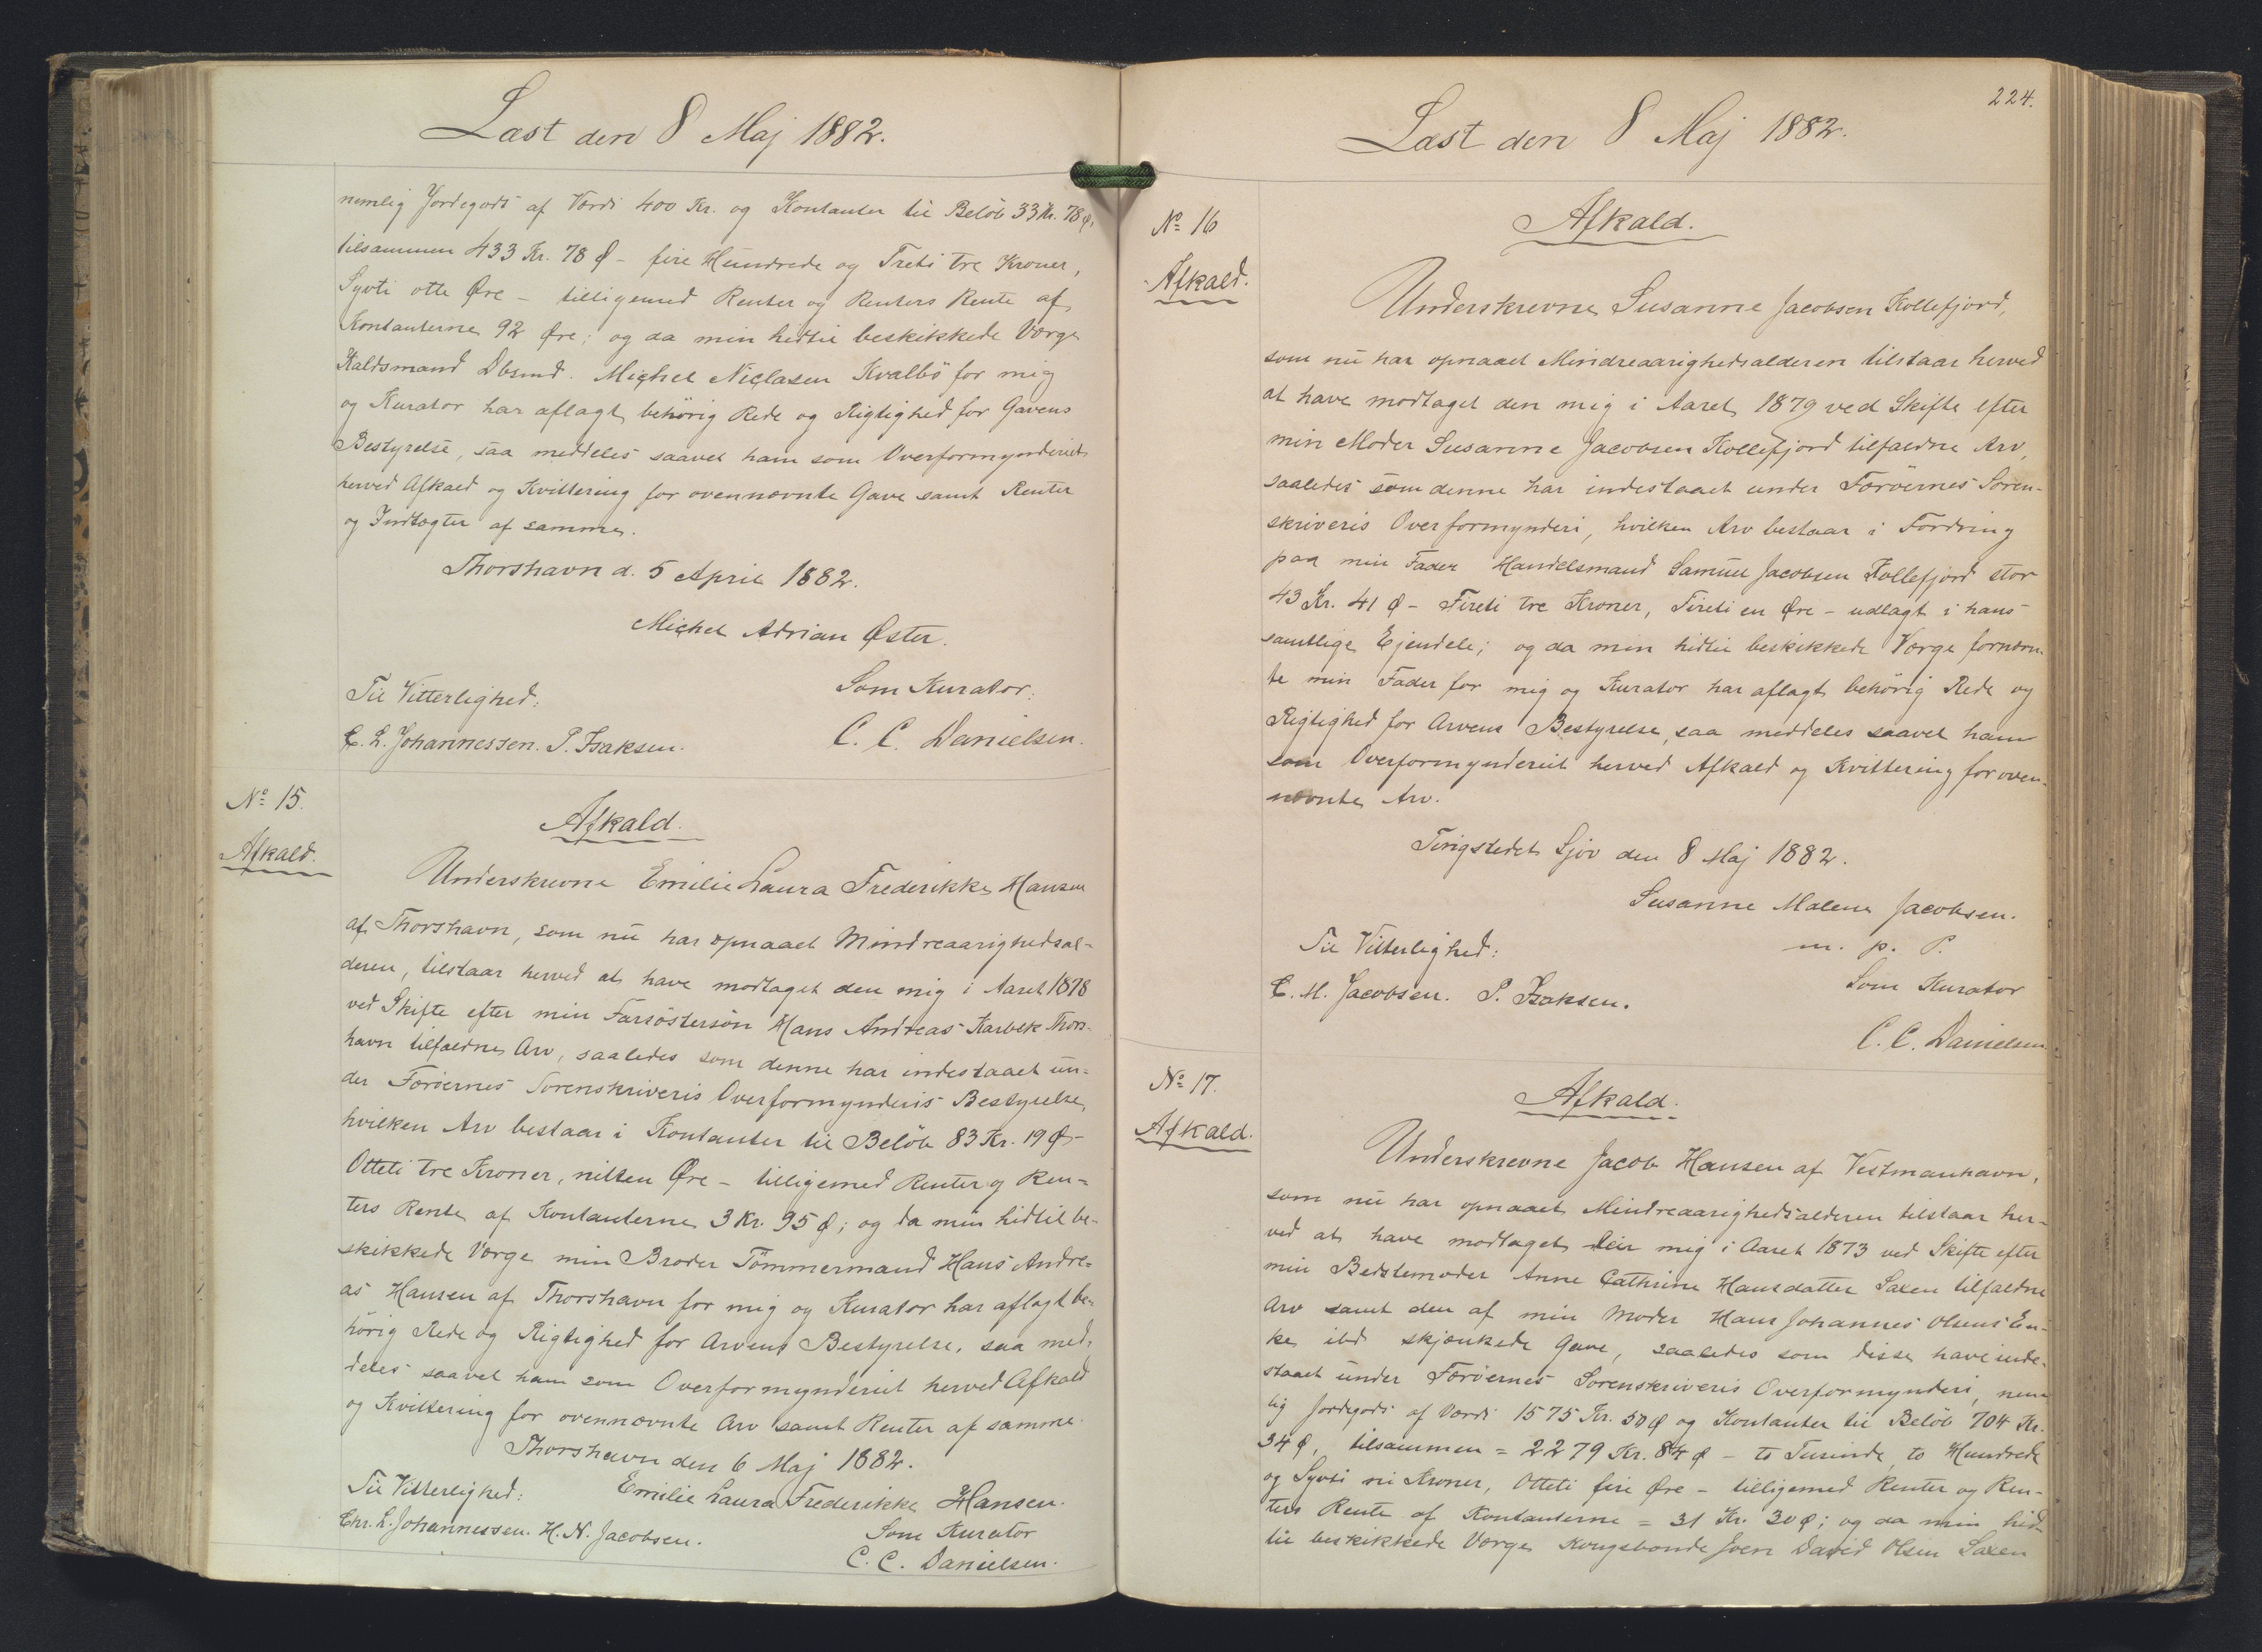 Læst den 8 Maj 1882.
nemlig Jordegods af Værdi 400 Kr. og Kontanter til Beløb 33 Kr. 78 Ø,
tilsammen 433 Kr. 78 Ø - fire Hundrede og Treti tre Kroner,
Syvti otte Øre - tilligemed Renter og Renters Rente af
Kontanterne 92 Øre; og da min hidtil beskikkede Værge
Kaldsmand Dbsmd. Michel Niclasen Kvalbø for mig
og Kurator har aflagt behørig Rede og Rigtighed for Gavens
Bestyrelse, saa meddeles saavel ham som Overformynderiet
herved Afkald og Kvittering for ovennævnte Gave samt Renter
og Indtægter af samme.
Thorshavn d. 5 April 1882.
Michel Adrian Øster.
Til Vitterlighed:
Som Kurator:
C. L. Johannessen. P. Isaksen.
C. C. Danielsen.
No 15.
Afkald.
Afkald.
Underskrevne Emilie Laura Frederikke Hansen
af Thorshavn, som nu har opnaaet Mindreaarighedsal-
deren, tilstaar herved at have modtaget den mig i Aaret 1878
ved Skifte efter min Farsøstersøn Hans Andreas Karbek Thors-
havn tilfaldne Arv, saaledes som denne har indestaaet un-
der Færøernes Sorenskriveris Overformynderis Bestyrelse,
hvilken Arv bestaar i Kontanter til Beløb 83 Kr. 19 Ø -
Otteti tre Kroner, nitten Øre - tilligemed Renter og Ren-
ters Rente af Kontanterne 3 Kr. 95 Ø; og da min hidtil be-
skikkede Værge min Broder Tømmermand Hans Andre-
as Hansen af Thorshavn for mig og Kurator har aflagt be-
hørig Rede og Rigtighed for Arvens Bestyrelse, saa med-
deles saavel ham som Overformynderiet herved Afkald
og Kvittering for ovennævnte Arv samt Renter af samme.
Thorshavn den 6 Maj 1882.
Til Vitterlighed:
Emilie Laura Frederikke Hansen.
Chr. L. Johannessen. H. N. Jacobsen.
Som Kurator
C. C. Danielsen.
224.
Læst den 8 Maj 1882.
No 16
Afkald.
Afkald.
Underskrevne Susanne Jacobsen Kollefjord,
som nu har opnaaet Mindreaarighedsalderen tilstaar herved
at have modtaget den mig i Aaret 1879 ved Skifte efter
min Moder Susanne Jacobsen Kollefjord tilfaldne Arv,
saaledes som denne har indestaaet under Færøernes Soren-
skriveris Overformynderi, hvilken Arv bestaar i Fordring
paa min Fader Handelsmand Samuel Jacobsen Kollefjord stor
43 Kr. 41 Ø - Fireti tre Kroner, Fireti en Øre - udlagt i hans
samtlige Ejendele; og da min hidtil beskikkede Værge fornævn-
te min Fader for mig og Kurator har aflagt behørig Rede og
Rigtighed for Arvens Bestyrelse, saa meddeles saavel ham
som Overformynderiet herved Afkald og Kvittering for oven-
nævnte Arv.
Tingstedet Sjov den 8 Maj 1882.
Susanne Malene Jacobsen.
Til Vitterlighed:
m. p. P.
C. M. Jacobsen. P. Isaksen.
Som Kurator
C. C. Danielsen
No 17.
Afkald.
Afkald.
Underskrevne Jacob Hansen af Vestmanhavn,
som nu har opnaaet Mindreaarighedsalderen tilstaar her-
ved at have modtaget den mig i Aaret 1873 ved Skifte efter
min Bedstemoder Anne Cathrine Hansdatter Saxen tilfaldne
Arv samt den af min Moder Hans Johannes Olsens En-
ke ibd skjænkede Gave, saaledes som disse have inde-
staaet under Færøernes Sorenskriveris Overformynderi, nem-
lig Jordegods af Værdi 1575 Kr. 50 Ø og Kontanter til Beløb 704 Kr.
34 Ø, tilsammen = 2279 Kr. 84 Ø - to Tusinde, to Hundrede
og Syvti ni Kroner, Otteti fire Øre - tilligemed Renter og Ren-
ters Rente af Kontanterne = 31 Kr. 30 Ø; og da min hid-
til beskikkede Værge Kongsbonde Joen David Olsen Saxen